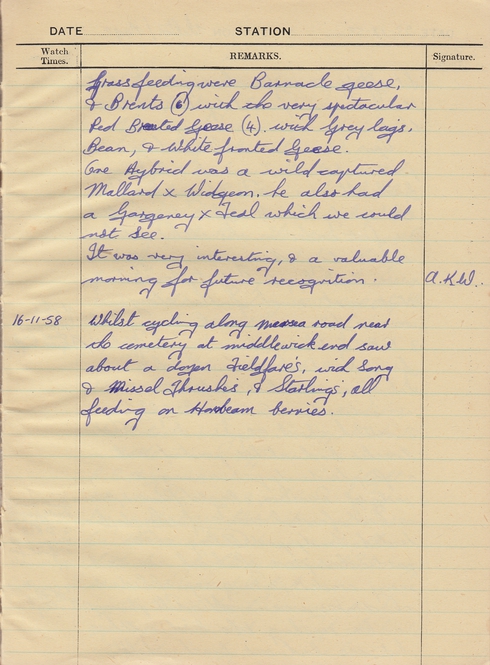 DATE STATION
Watch Times. REMARKS. Signature.
Grass feeding were Barnacle geese,
& Brents (6) with the very spectacular
Red Breasted Geese (4). with Grey lags,
Bean, & White fronted Geese.
One Hybrid was a wild captured
Mallard x Widgeon. he also had
a Gargeney x Teal which we could
not see.
It was very interesting, & a valuable
morning for future recognition. A.K.W.
16-11-58 Whilst cycling along mersea road near
the cemetery at middlewick end saw
about a dozen Fieldfare's, with Song
& Missel Thrushs, & Starlings, all
feeding on Hornbeam berries.